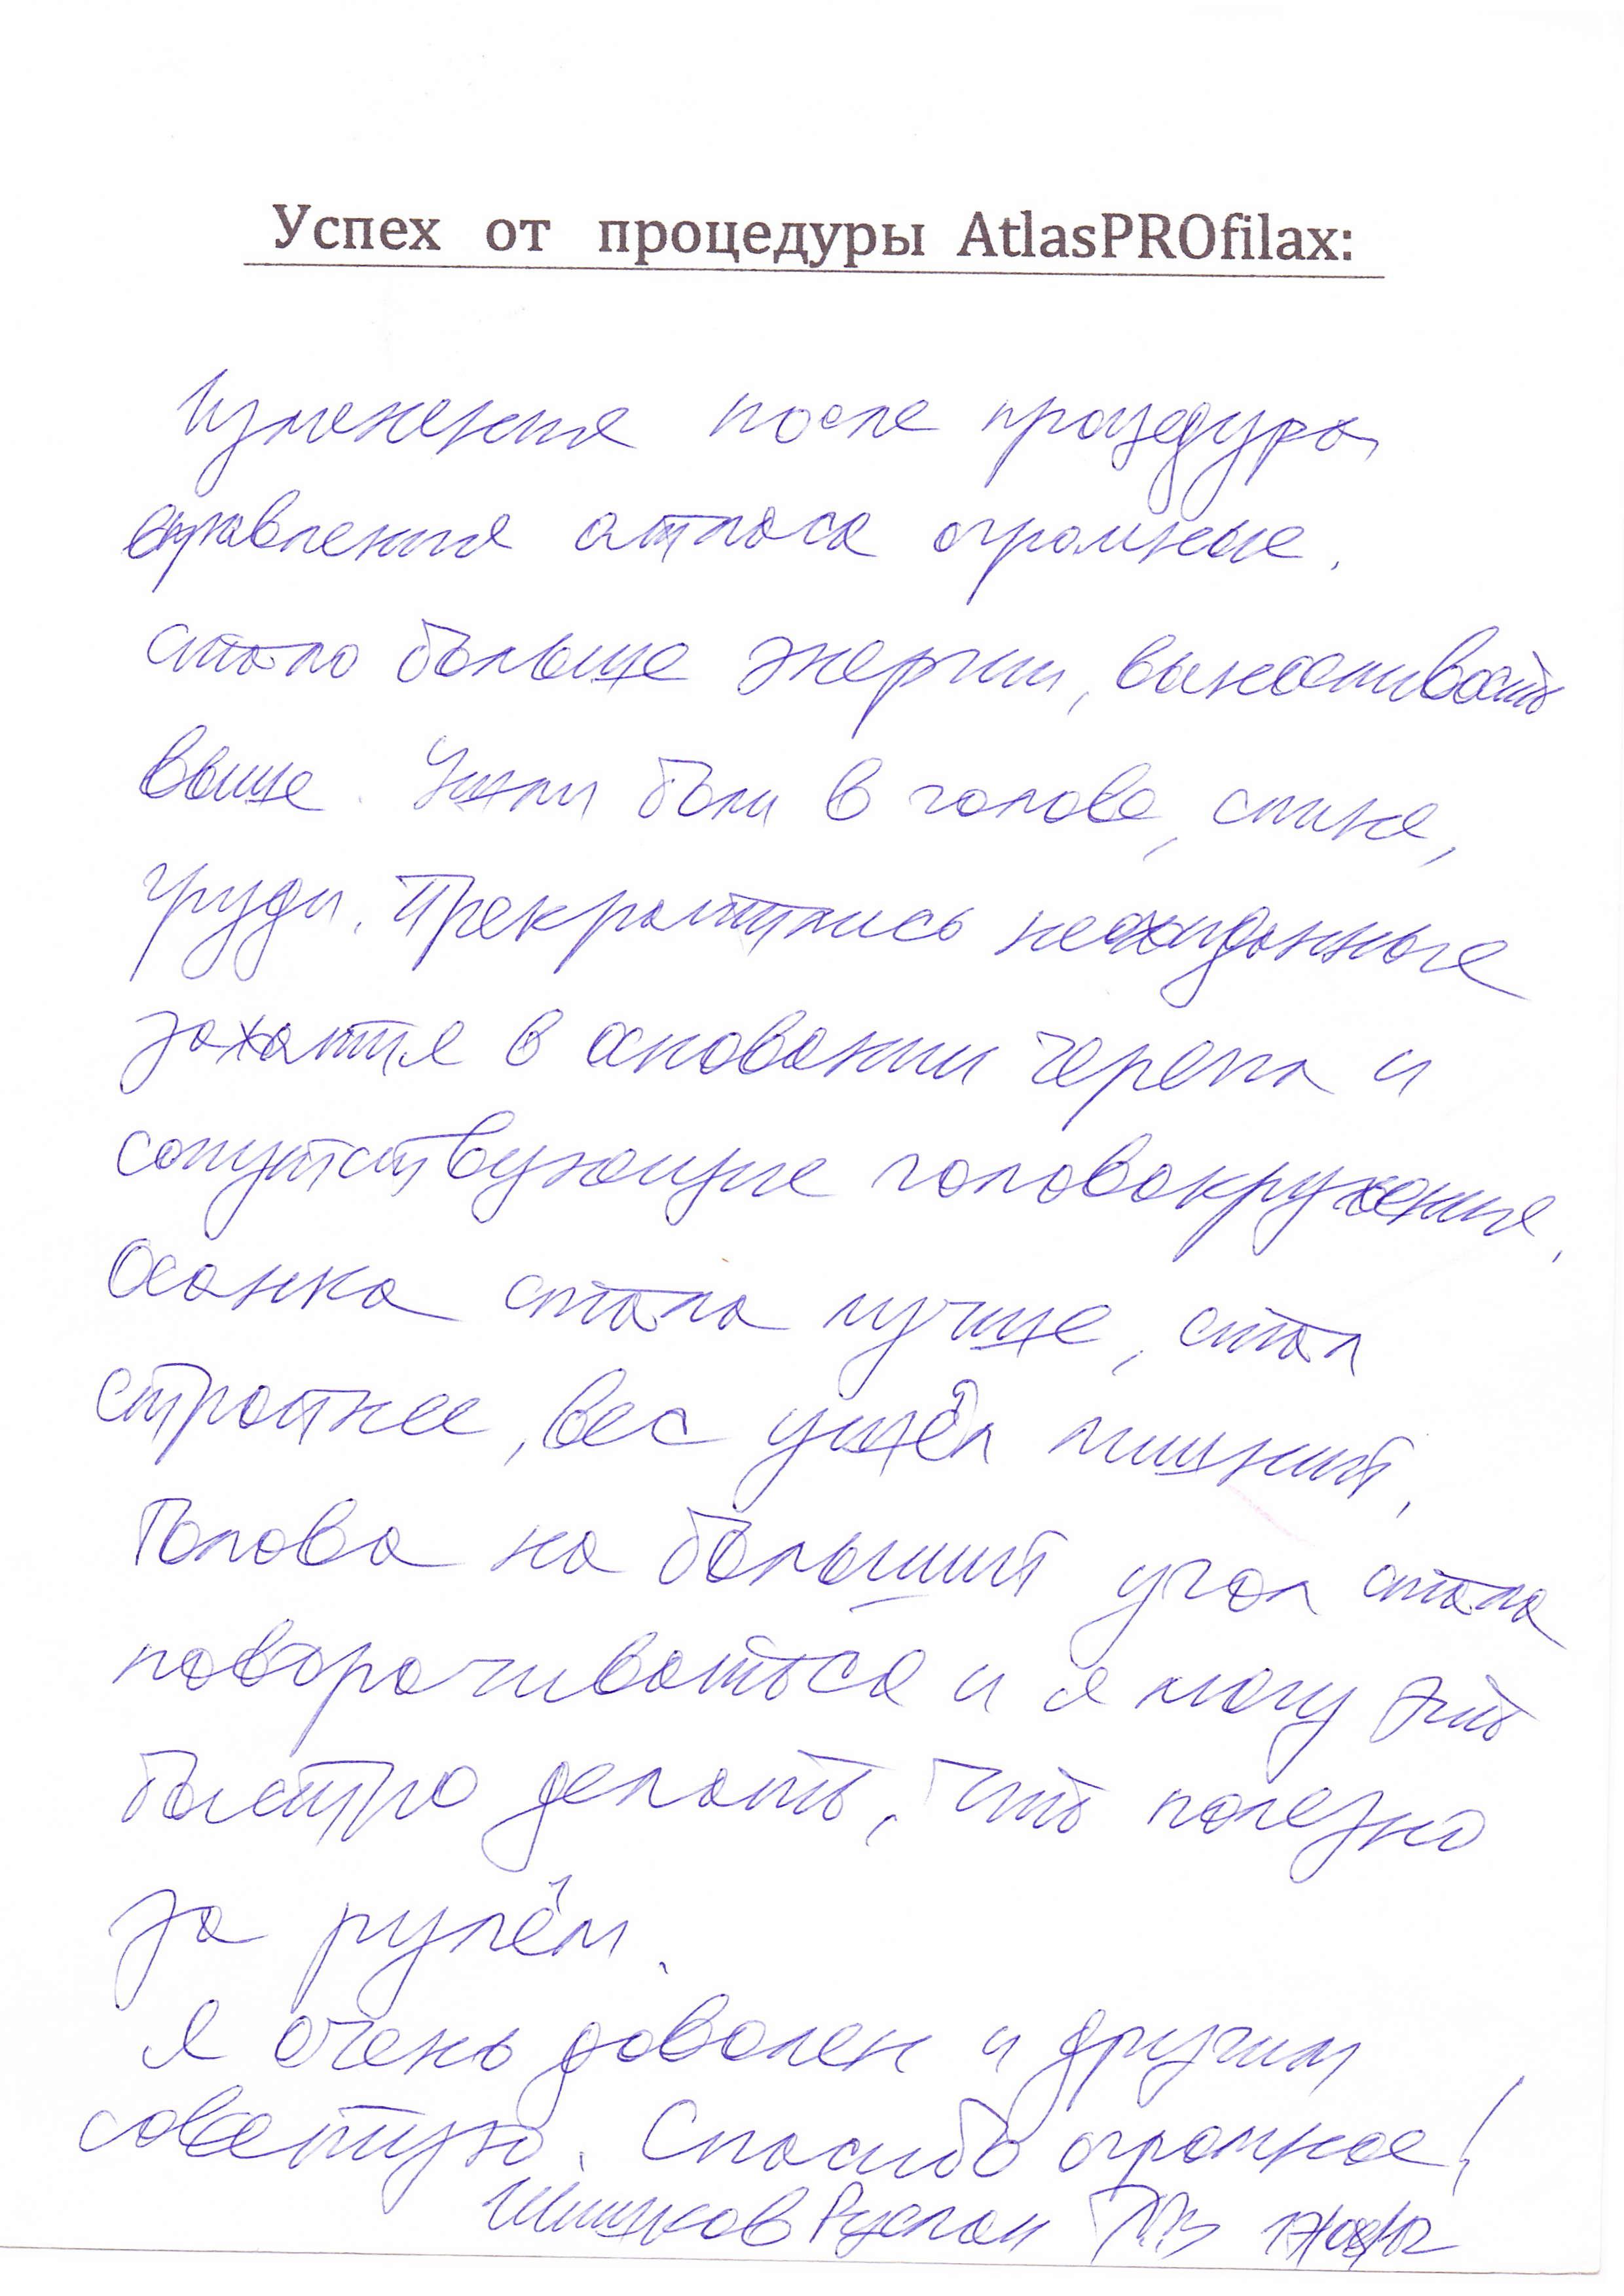 Успех от процедуры AtlasPROfilax:
Изменения после процедуры
вправления атласа огромные.
Стало больше энергии, выносливость
выше. Ушли боли в голове, спине,
груди. Прекратились неожиданные
зажатия в основании черепа и
сопутствующие головокружения.
Осанка стала лучше, стал
стройнее, вес ушёл лишний.
Голова на больший угол стала
поворачиваться и я могу это
быстро делать, что полезно
за рулём.
Я очень доволен и другим
советую. Спасибо огромное!
Руслан